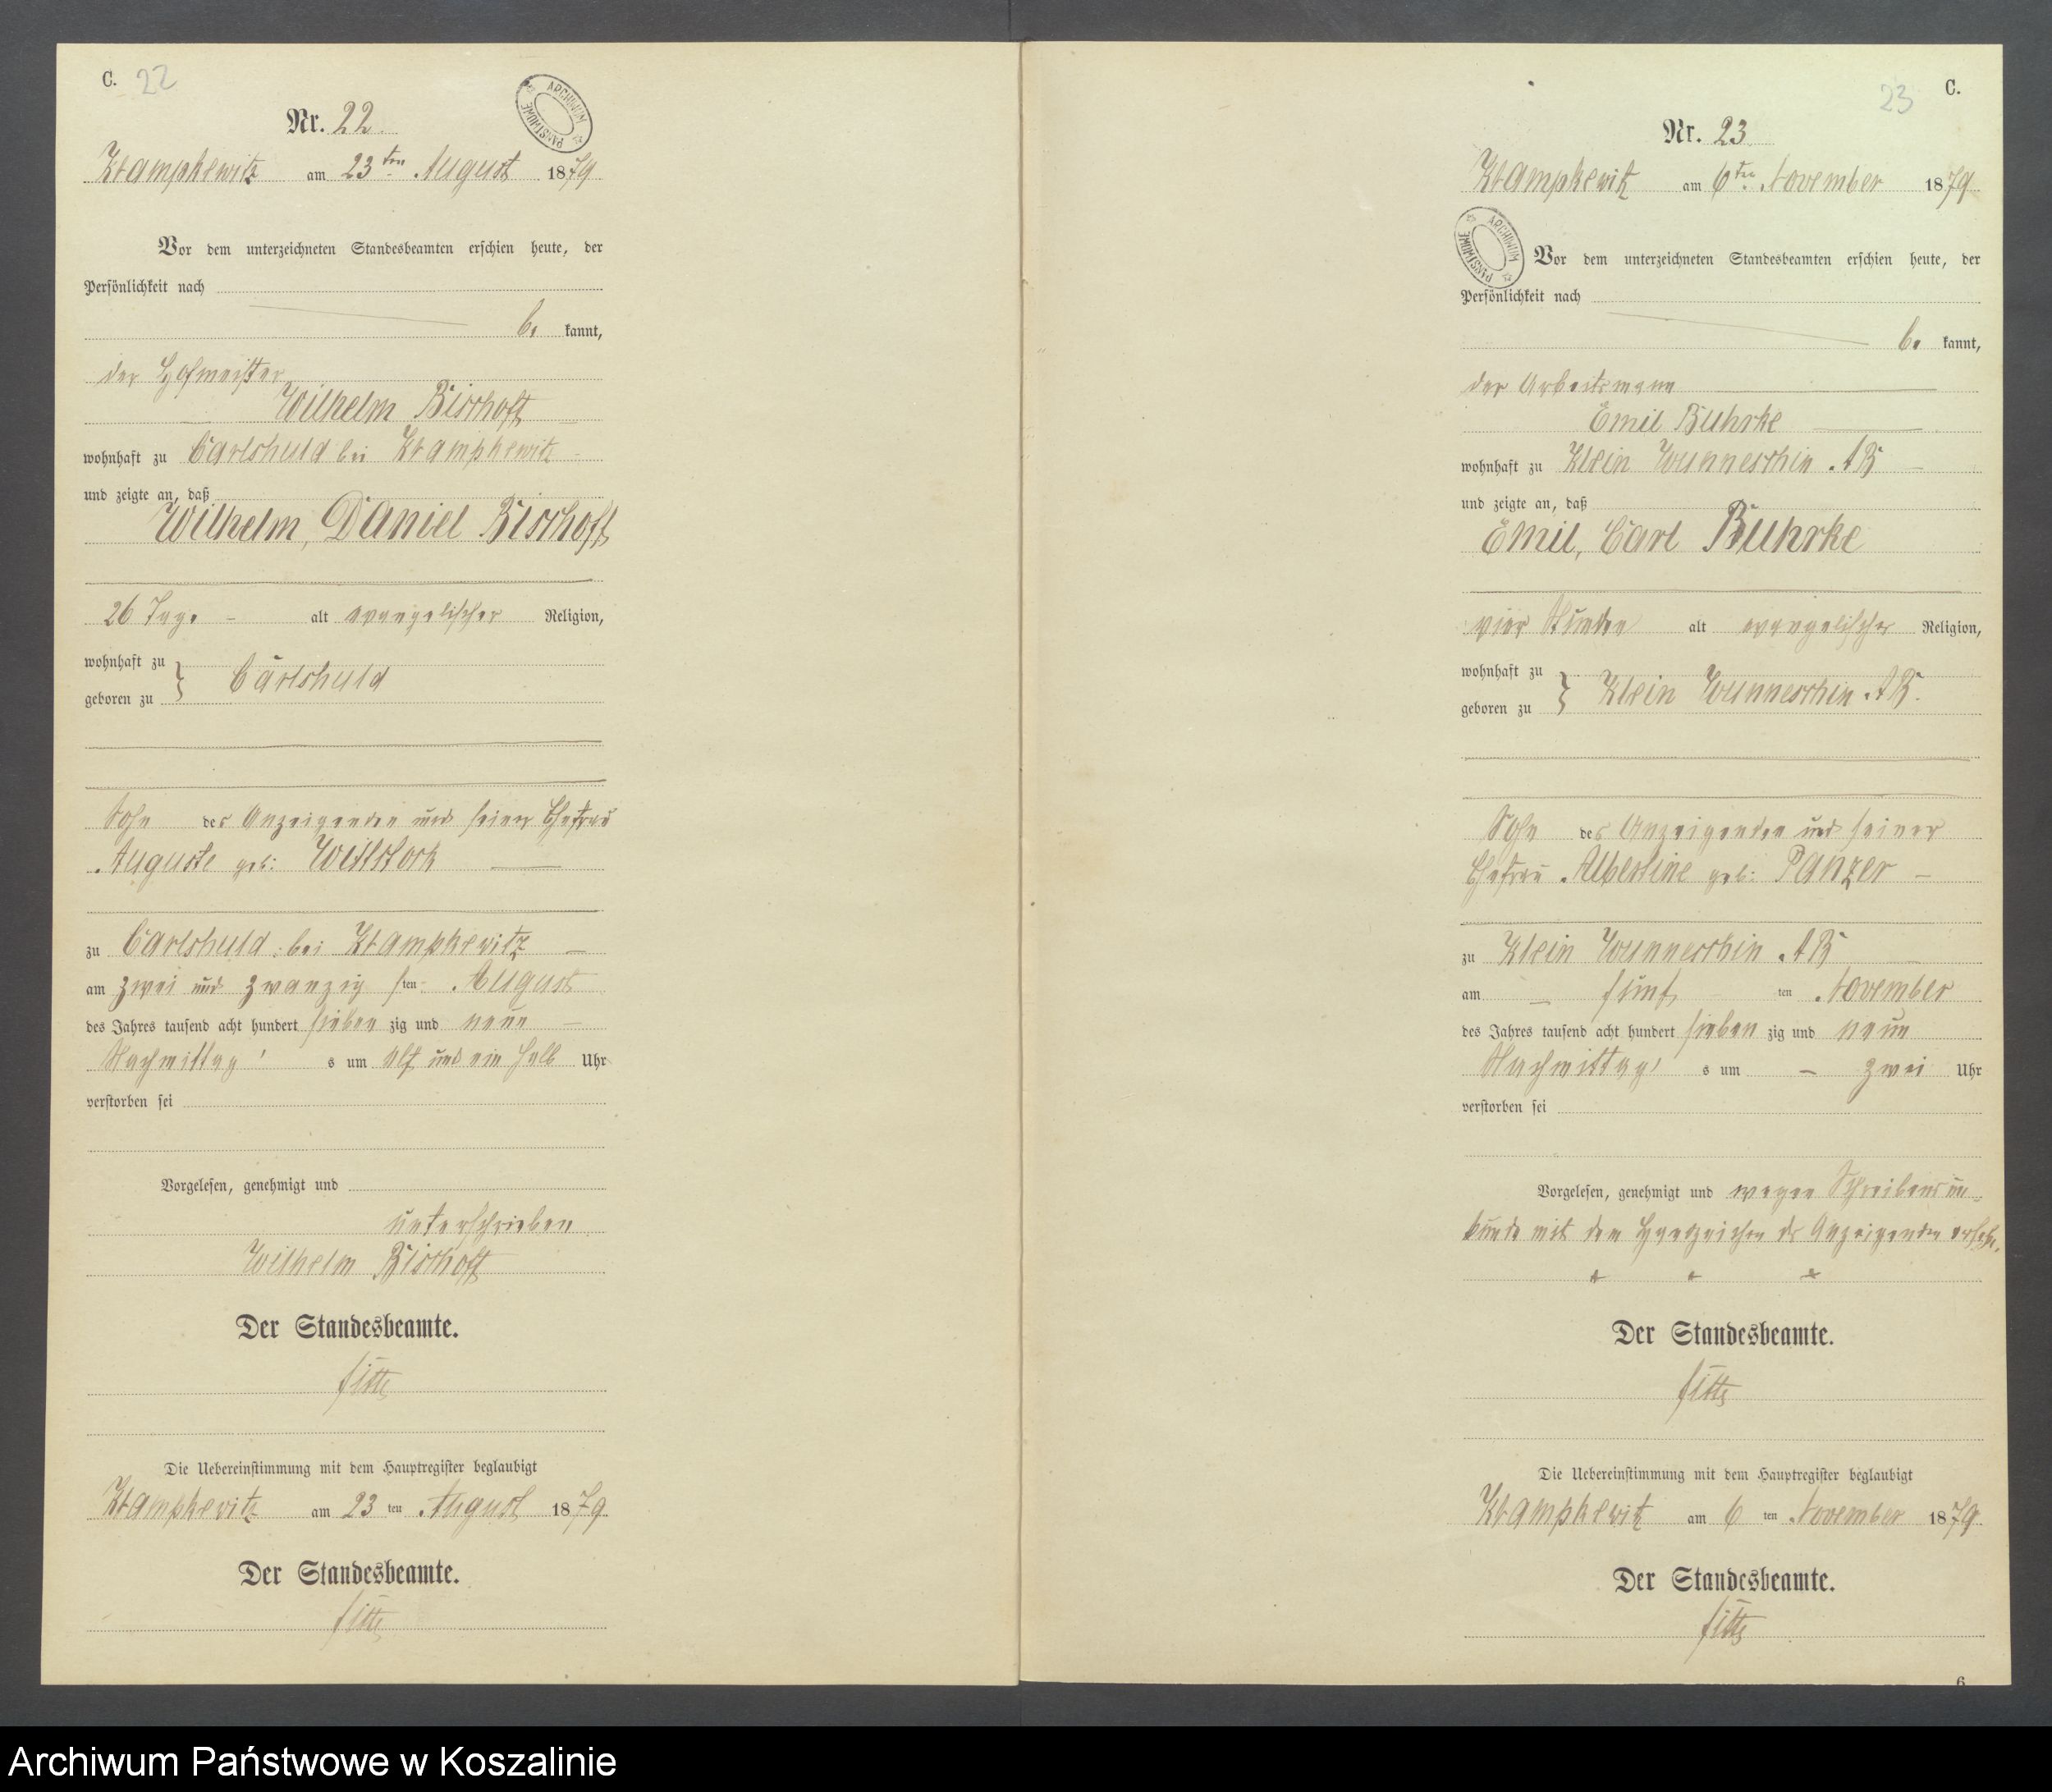 C. 22
ARCHIWUM PAŃSTWOWE
Nr. 22.
Krampkewitz am 23ten August 1879
Vor dem unterzeichneten Standesbeamten erschien heute, der
Persönlichkeit nach
be kannt,
der Hofmeister
Wilhelm Bischoff
wohnhaft zu Carlshuld bei Krampkewitz
und zeigte an, daß
Wilhelm, Daniel Bischoff
26 Tage alt evangelischer Religion,
wohnhaft zu
geboren zu } Carlshuld
Sohn des Anzeigenden und seiner Ehefrau
Auguste geb: Wittstock
zu Carlshuld bei Krampkewitz
am zwei und zwanzig sten August
des Jahres tausend acht hundert sieben zig und neun
Nachmittag s um elf und ein halb Uhr
verstorben sei
Vorgelesen, genehmigt und
unterschrieben
Wilhelm Bischoff
Der Standesbeamte.
Die Uebereinstimmung mit dem Hauptregister beglaubigt
Krampkewitz am 23 ten August 1879.
Der Standesbeamte.
23 C.
Nr. 23.
Krampkewitz am 6ten November 1879
ARCHIWUM PAŃSTWOWE
Vor dem unterzeichneten Standesbeamten erschien heute, der
Persönlichkeit nach
be kannt,
der Arbeitsmann
Emil Buhrke
wohnhaft zu Klein Wunneschin AB
und zeigte an, daß
Emil, Carl Buhrke
vier Stunden alt evangelischer Religion,
wohnhaft zu
geboren zu } Klein Wunneschin AB.
Sohn des Anzeigenden und seiner
Ehefrau Albertine geb: Panzer
zu Klein Wunneschin AB
am fünf ten November
des Jahres tausend acht hundert sieben zig und neun
Nachmittag s um zwei Uhr
verstorben sei
Vorgelesen, genehmigt und wegen Schreibensun-
kunde mit dem Handzeichen des Anzeigenden
+ + +
Der Standesbeamte.
Die Uebereinstimmung mit dem Hauptregister beglaubigt
Krampkewitz am 6 ten November 1879.
Der Standesbeamte.
6
Archiwum Państwowe w Koszalinie